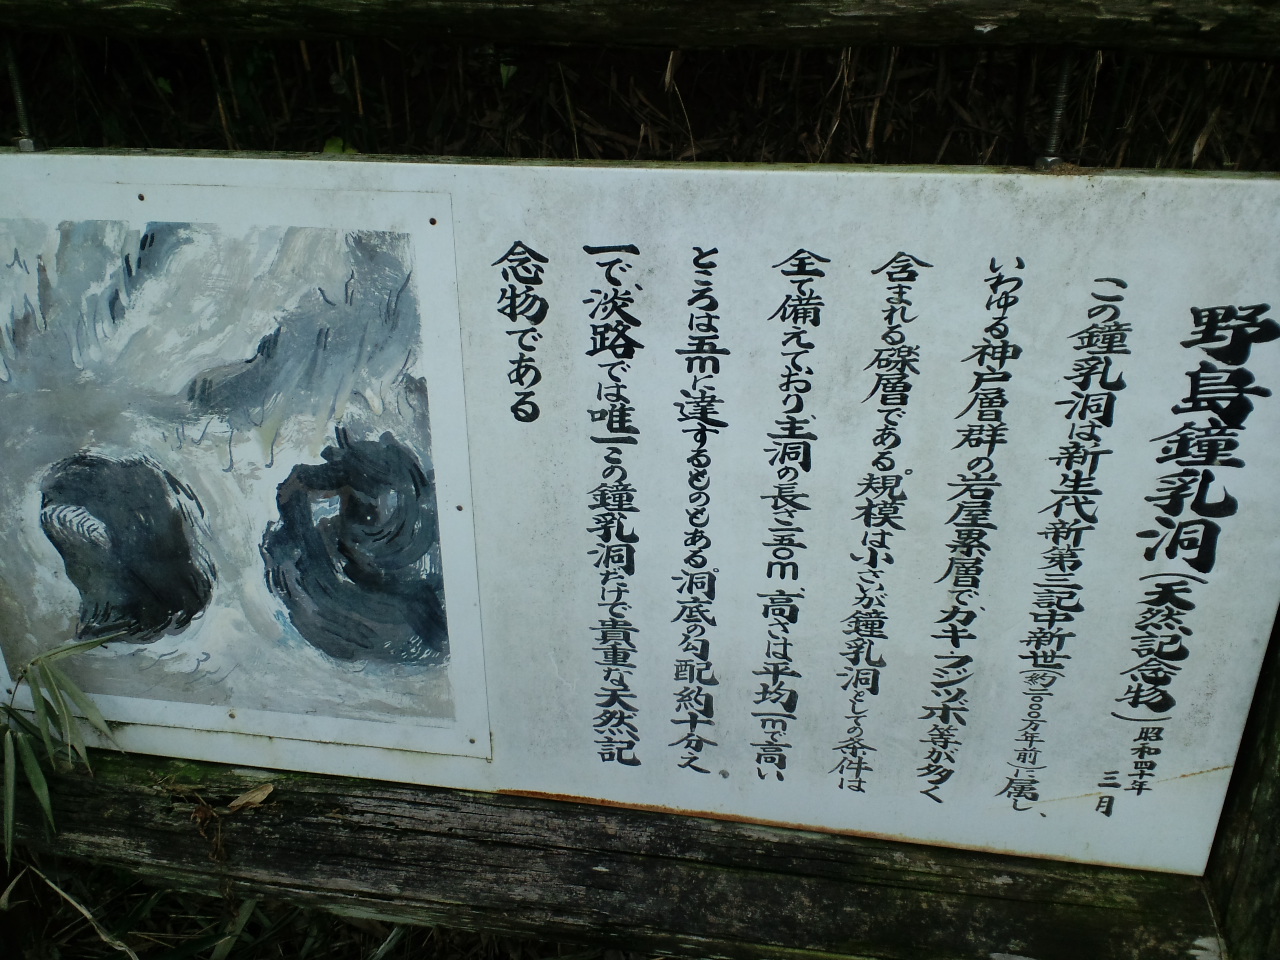 野島鐘乳洞(天然記念物)昭和四十年三月
この鐘乳洞は新生代新第三記中新世(約二〇〇〇万年前)に属し、
いわゆる神戸層群の岩屋累層で、カキ・フジツボ等が多く
含まれる礫層である。規模は小さいが鐘乳洞としての条件は
全て備えており、主洞の長さ二五〇m、高さは平均一mで高い
ところは五mに達するものもある。洞底の勾配約十分之
一で、淡路では唯一この鐘乳洞だけで貴重な天然記
念物である